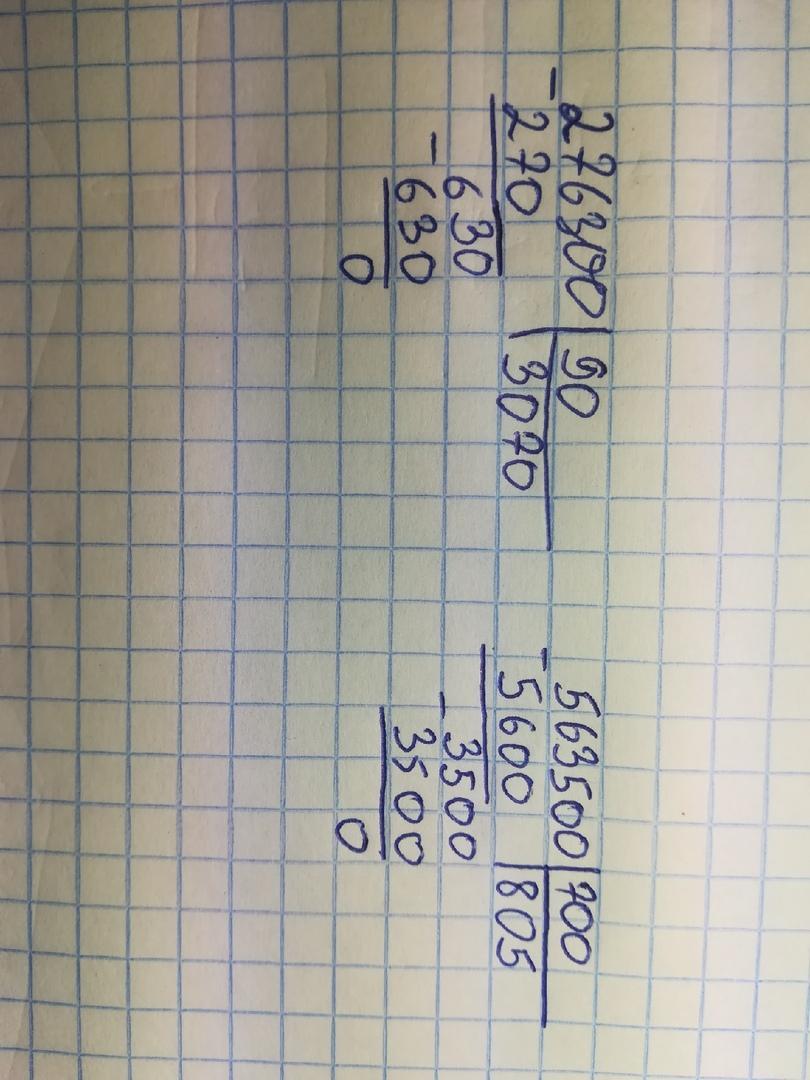 -276300 | 90
270 | 3070
630
-630
0
-563500 | 700
5600 | 805
-3500
3500
0